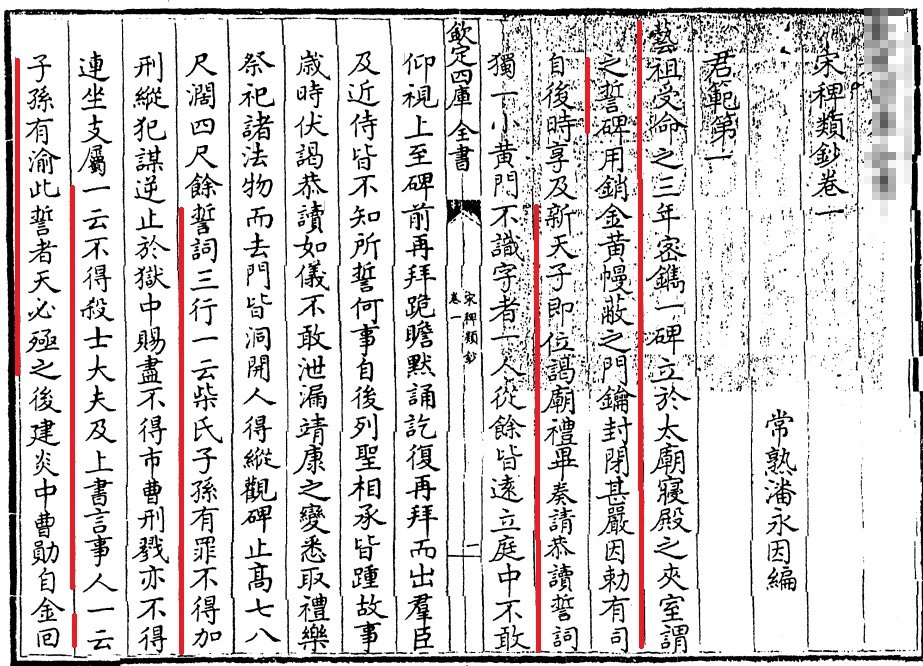 宋稗類鈔卷一
常熟潘永因編
君範第一
藝祖受命之三年密鐫一碑立於太廟寢殿之夾室謂
之誓碑用銷金黃幔蔽之門鑰封閉甚嚴因勅有司
自後時享及新天子即位謁廟禮畢奏請恭讀誓詞
獨一小黃門不識字者一人從餘皆遠立庭中不敢
欽定四庫全書
宋稗類鈔
卷一
一
仰視上至碑前再拜跪瞻默誦訖復再拜而出羣臣
及近侍皆不知所誓何事自後列聖相承皆踵故事
歲時伏謁恭讀如儀不敢泄漏靖康之變悉取禮樂
祭祀諸法物而去門皆洞開人得縱觀碑止高七八
尺濶四尺餘誓詞三行一云柴氏子孫有罪不得加
刑縱犯謀逆止於獄中賜盡不得市曹刑戮亦不得
連坐支屬一云不得殺士大夫及上書言事人一云
子孫有渝此誓者天必殛之後建炎中曹勛自金回